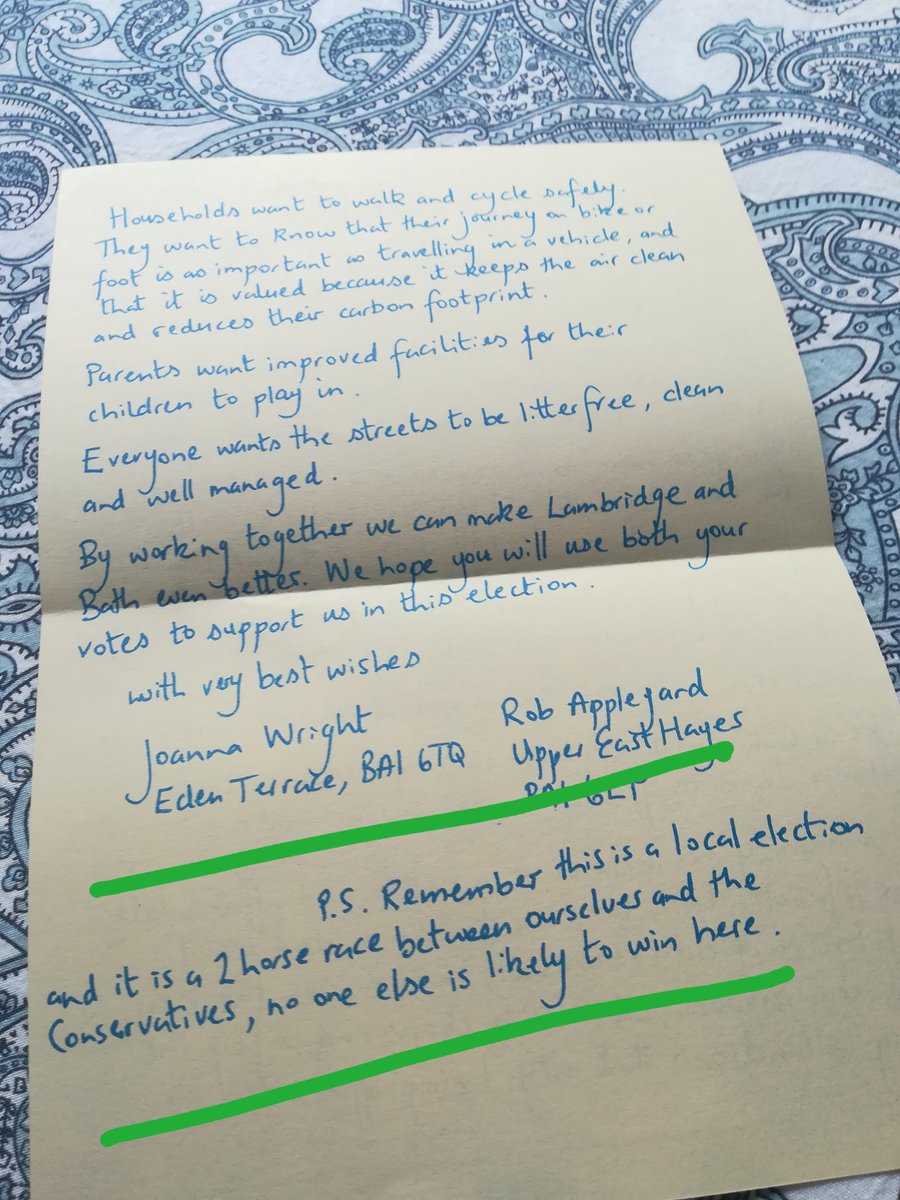 Households want to walk and cycle safely.
They want to know that their journey on bike or
foot is as important as travelling in a vehicle, and
that it is valued because it keeps the air clean
and reduces their carbon footprint.
Parents want improved facilities for their
children to play in.
Everyone wants the streets to be litter free, clean
and well managed.
By working together we can make Lambridge and
Bath even better. We hope you will use both your
votes to support us in this election.
with very best wishes
Joanna Wright
Eden Terrace, BA1 6TQ
Rob Appleyard
Upper East Hayes
P.S. Remember this is a local election
and it is a 2 horse race between ourselves and the
Conservatives, no one else is likely to win here.